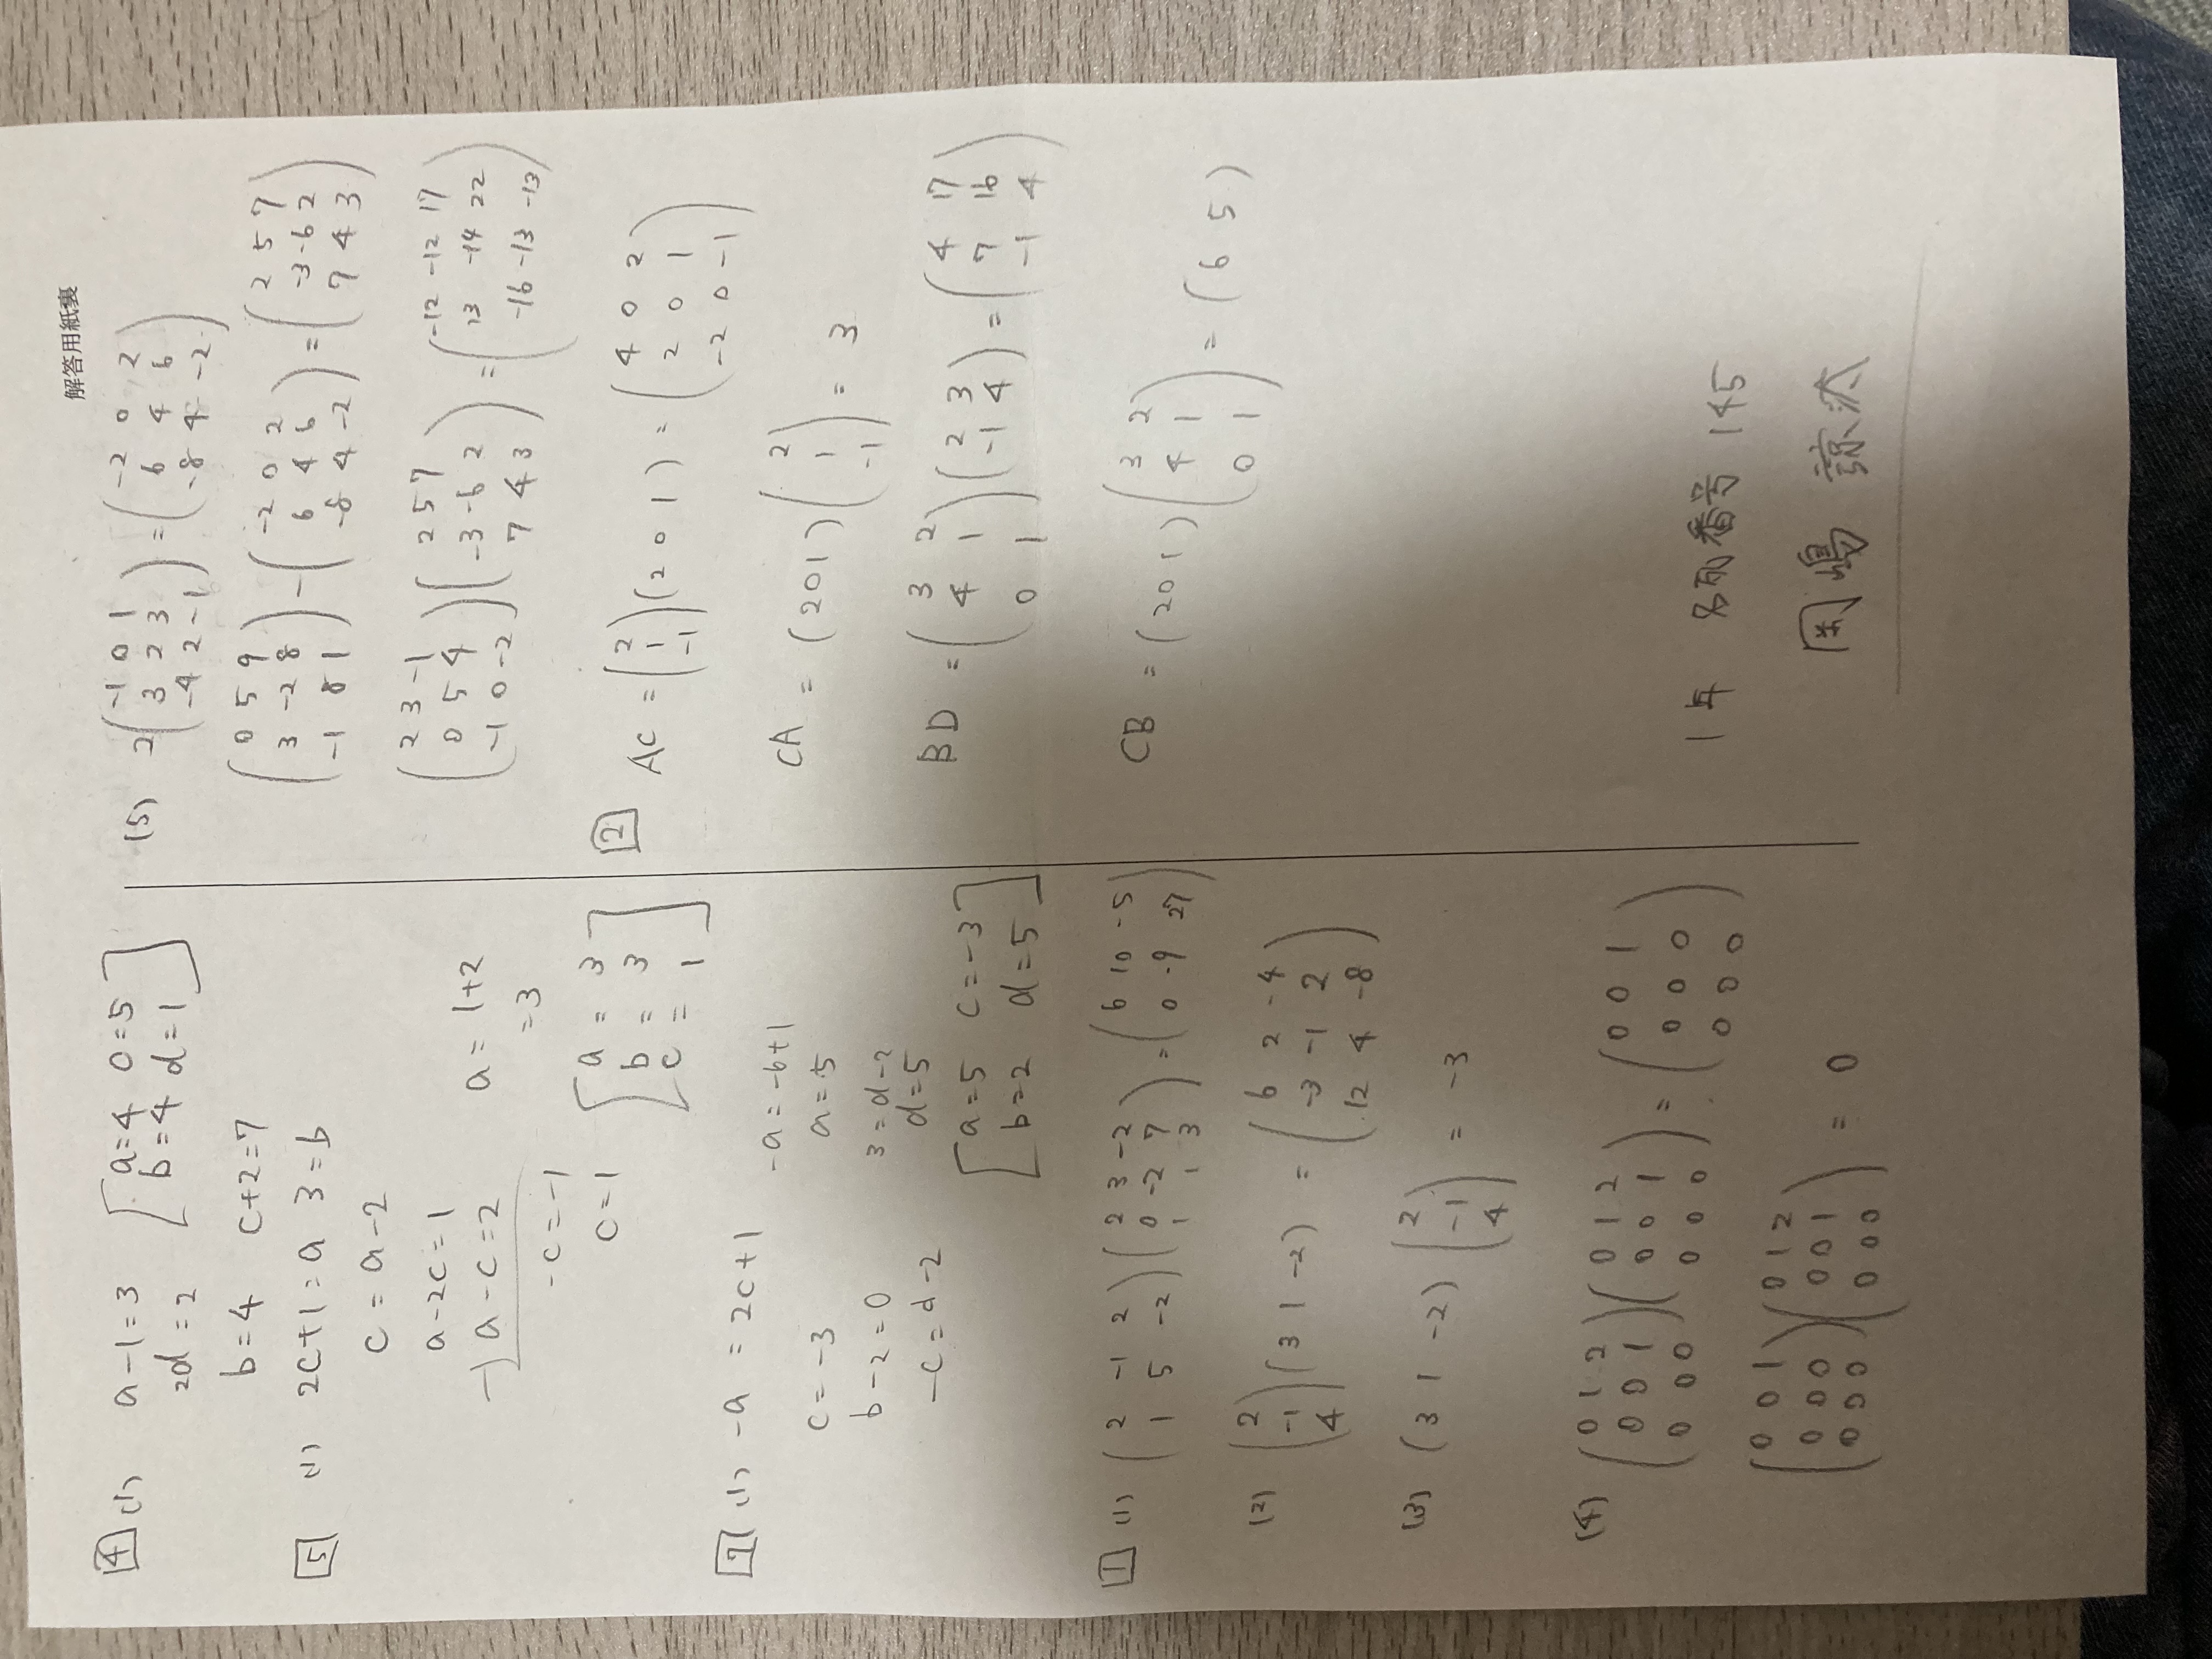 解答用紙裏
4 (1) a-1=3 [a=4 0=5
2d=2 b=4 d=1]
b=4 c+2=7
5 (1) 2c+1=a 3=b
c = a-2
a-2c=1
-) a-c=2
-c=-1
c=1
a = 1+2
=3
[a = 3
b = 3
c = 1]
7 (1) -a = 2c+1
c = -3
b-2=0
-c=d-2
-a=-6+1
a=5
3=d-2
d=5
[a=5 c=-3
b=2 d=5]
1 (1) (2 -1 2 / 1 5 -2)(2 3 -2 / 0 -2 7 / 1 1 3) = (6 10 -5 / 0 -9 27)
(2) (2 / -1 / 4)(3 1 -2) = (6 2 -4 / -3 -1 2 / 12 4 -8)
(3) (3 1 -2)(2 / -1 / 4) = -3
(4) (0 1 2 / 0 0 1 / 0 0 0)(0 1 2 / 0 0 1 / 0 0 0) = (0 0 1 / 0 0 0 / 0 0 0)
(0 0 1 / 0 0 0 / 0 0 0)(0 1 2 / 0 0 1 / 0 0 0) = 0
(5) 2(-1 0 1 / 3 2 3 / -4 2 -1) = (-2 0 2 / 6 4 6 / -8 4 -2)
(0 5 9 / 3 -2 8 / -1 8 1) - (-2 0 2 / 6 4 6 / -8 4 -2) = (2 5 7 / -3 -6 2 / 7 4 3)
(2 3 -1 / 0 5 4 / -1 0 -2)(2 5 7 / -3 -6 2 / 7 4 3) = (-12 -12 17 / 13 -14 22 / -16 -13 -13)
2 AC = (2 / 1 / -1)(2 0 1) = (4 0 2 / 2 0 1 / -2 0 -1)
CA = (2 0 1)(2 / 1 / -1) = 3
BD = (3 2 / 4 1 / 0 1)(2 3 / -1 4) = (4 17 / 7 16 / -1 4)
CB = (2 0 1)(3 2 / 4 1 / 0 1) = (6 5)
1年 名列番号 145
岡嶋 諒汰